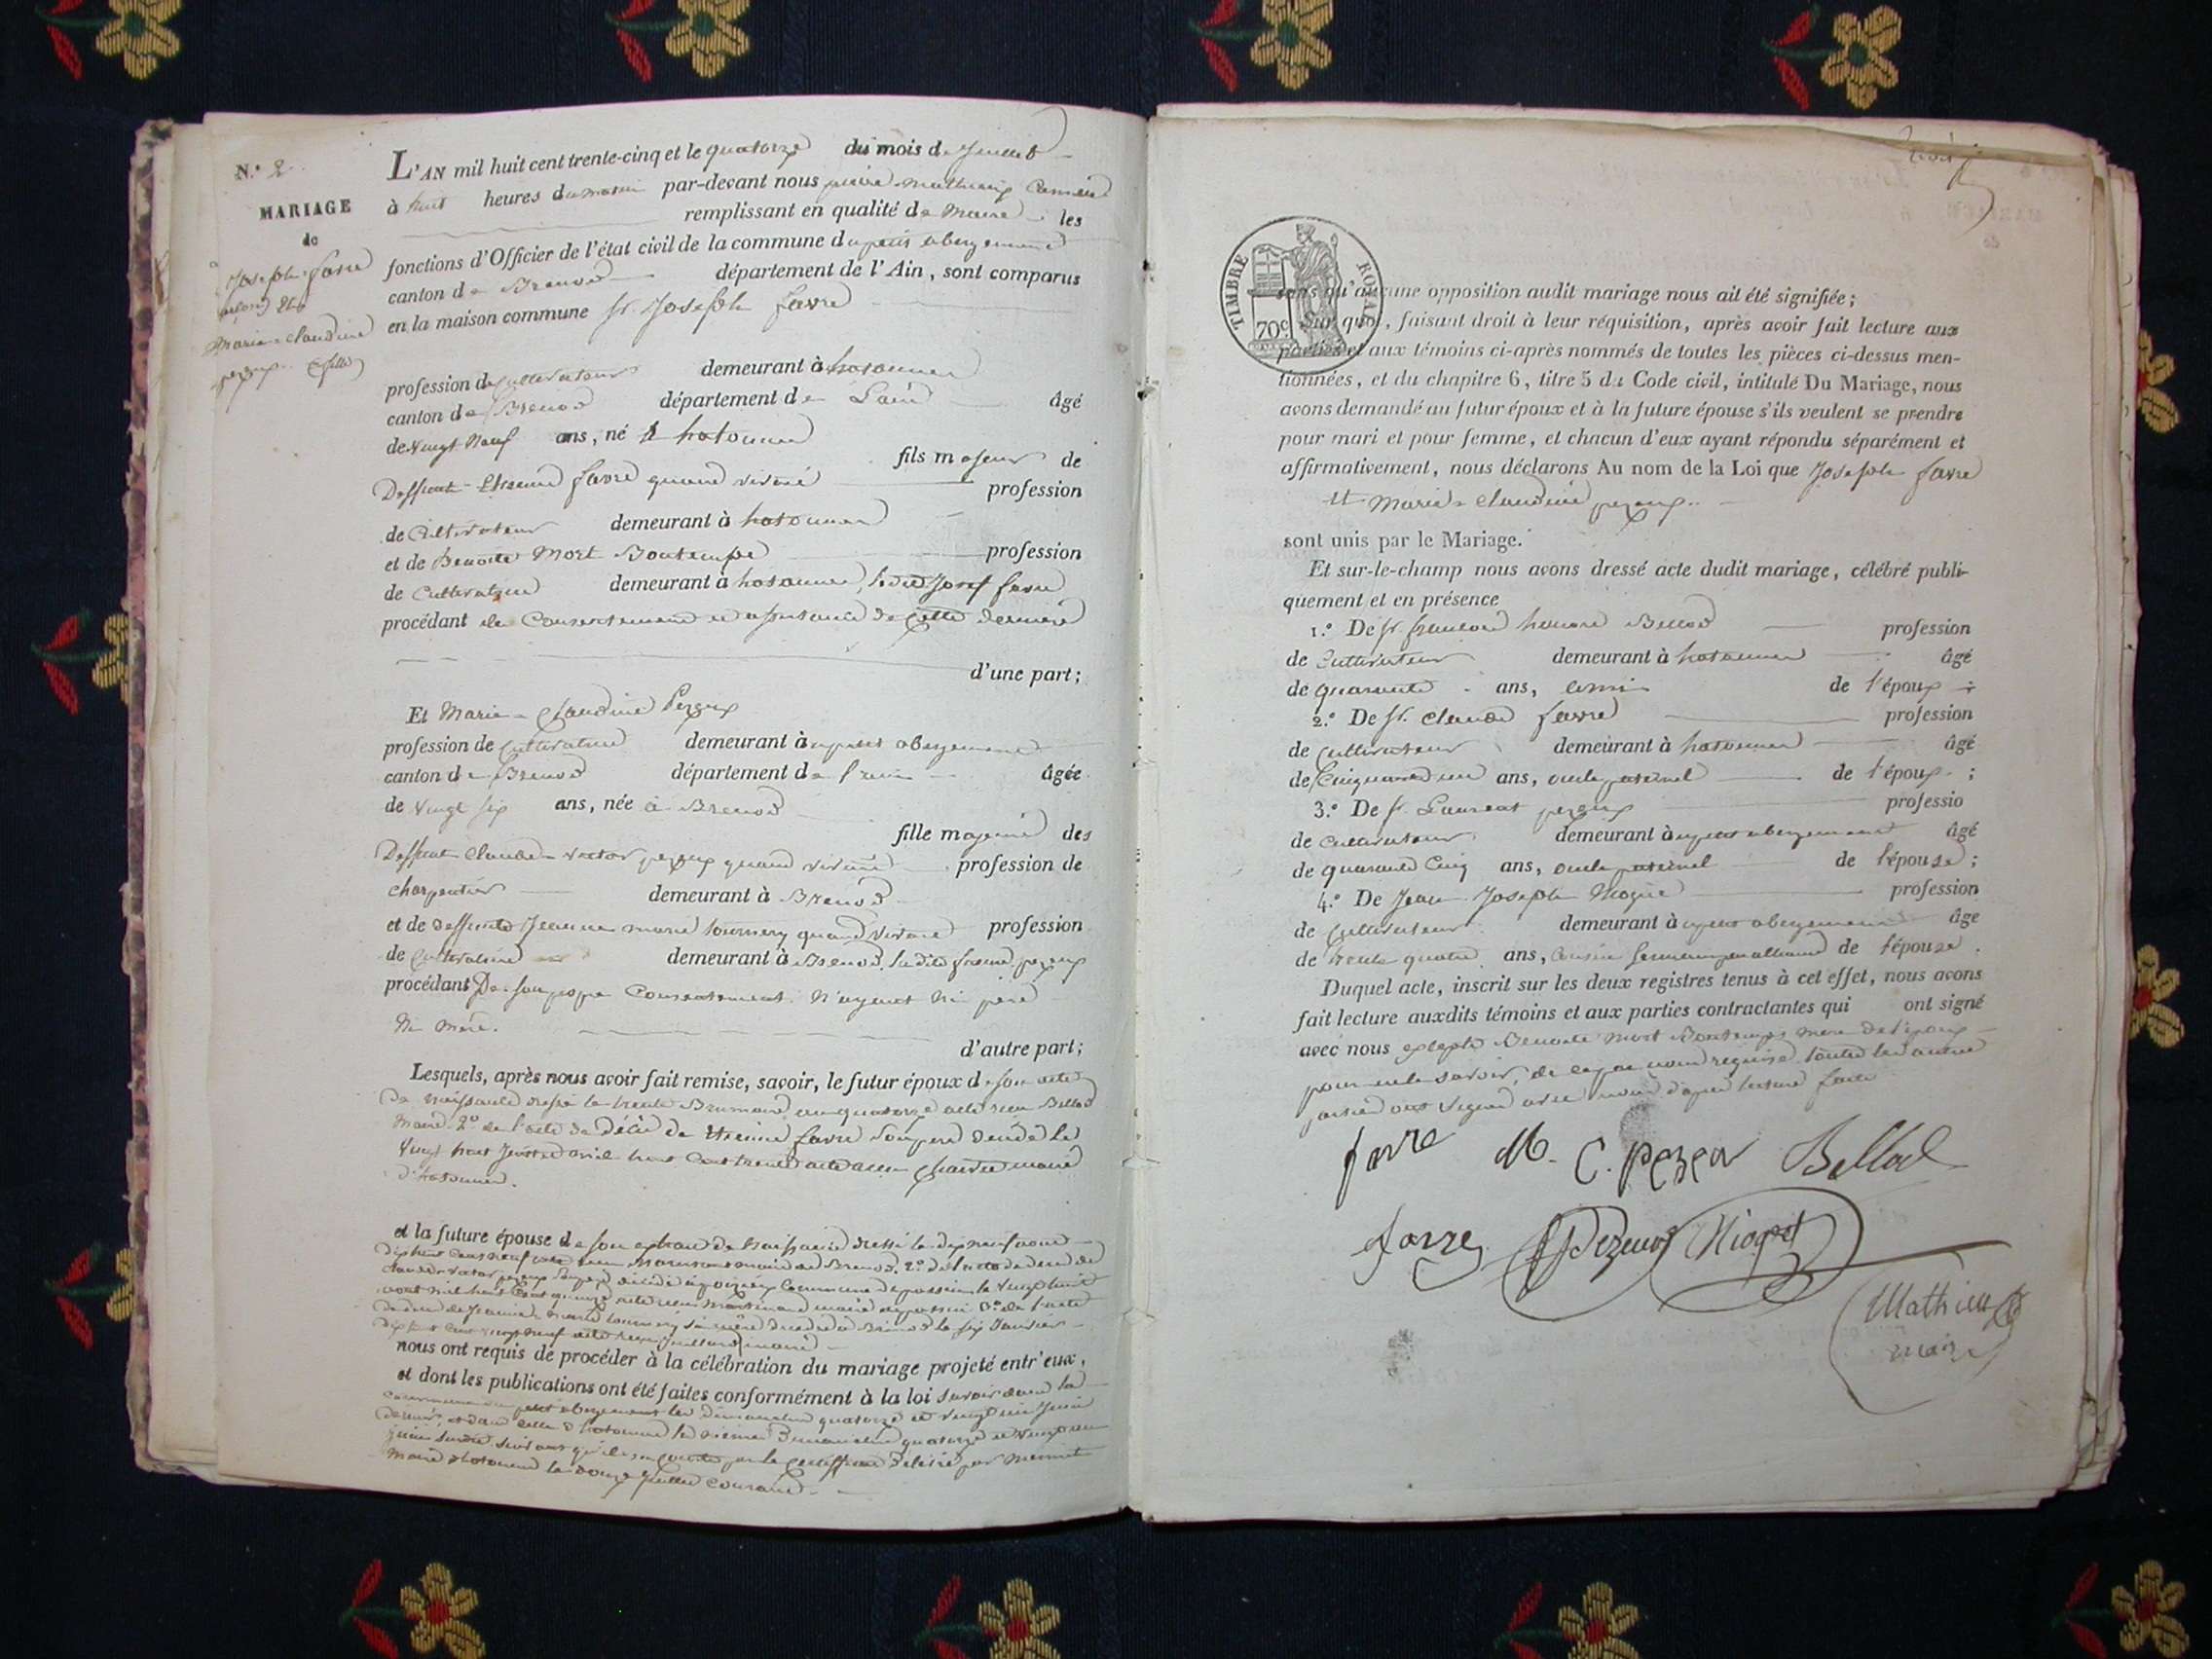 N.° 2
MARIAGE
de
Joseph favre
Marie-Claudine
pezeux
L'AN mil huit cent trente-cinq et le quatorze du mois de Juillet
à huit heures du matin par-devant nous pierre mathieux
remplissant en qualité de Maire les
fonctions d'Officier de l'état civil de la commune du petit abergement
canton de Brenod département de l'Ain, sont comparus
en la maison commune Sr. Joseph favre
profession de cultivateur demeurant à hotonnes
canton de Brenod département de Lain âgé
de vingt neuf ans, né à hotonnes
fils majeur de
Deffunt Etienne favre quand vivait profession
de Cultivateur demeurant à hotonnes
et de Benoite Mort Bontemps profession
de Cultivatrice demeurant à hotonnes, ledit Josef favre
procédant du Consentement et assistance de cette dernière
d'une part;
Et Marie-Claudine Pezeux
profession de cultivatrice demeurant au petit abergement
canton de Brenod département de l'ain âgée
de vingt six ans, née à Brenod
fille majeure des
Deffunt Claude-victor pezeux quand vivait profession de
charpentier demeurant à Brenod
et de deffunte Jeanne marie tournery quand vivait profession
de Cultivatrice demeurant à Brenod. ladite pezeux
procédant De son propre Consentement. N'ayant Ni père
Ni Mère.
d'autre part;
Lesquels, après nous avoir fait remise, savoir, le futur époux de son acte
De naissance dressé le trente Brumaire an quatorze acte reçu Bellod
Maire 2° de l'acte de Décès de Etienne favre Son père décédé le
vingt huit mil huit Cent trente acte reçu maire
d'hotonnes.
et la future épouse de son extrait de Naissance dressé le dix neuf
dix huit cent neuf acte reçu maire de Brenod. 2° de l'acte de décès de
Claude-victor pezeux Son père décédé à Commune de le vingt huit
août mil huit Cent quinze acte reçu maire 3° de l'acte
de décès de Jeanne marie tournery sa mère décédée à Brenod le six Janvier
dix huit cent vingt neuf acte reçu maire
nous ont requis de procéder à la célébration du mariage projeté entr'eux,
et dont les publications ont été faites conformément à la loi savoir dans la
commune du petit abergement les Dimanches quatorze et vingt un Juin
dernier, et dans celle d'hotonnes les mêmes Dimanches quatorze et vingt un
Juin suivant qu'il en conste par le certificat Délivré par
Maire d'hotonnes le douze Juillet Courant
TIMBRE ROYAL
70c
sans qu'aucune opposition audit mariage nous ait été signifiée;
Sur quoi, faisant droit à leur réquisition, après avoir fait lecture aux
parties et aux témoins ci-après nommés de toutes les pièces ci-dessus men-
tionnées, et du chapitre 6, titre 5 du Code civil, intitulé Du Mariage, nous
avons demandé au futur époux et à la future épouse s'ils veulent se prendre
pour mari et pour femme, et chacun d'eux ayant répondu séparément et
affirmativement, nous déclarons Au nom de la Loi que Joseph favre
et Marie-Claudine pezeux
sont unis par le Mariage.
Et sur-le-champ nous avons dressé acte dudit mariage, célébré publi-
quement et en présence
1.° De Sr. Bellod profession
de Cultivateur demeurant à hotonnes âgé
de quarante ans, ami de l'époux;
2.° De Sr. Claude favre profession
de cultivateur demeurant à hotonnes âgé
de Cinquante un ans, oncle paternel de l'époux;
3.° De Sr. Laurent pezeux professio
de Cultivateur demeurant au petit abergement âgé
de quarante Cinq ans, oncle paternel de l'épouse;
4.° De Jean-Joseph Niogret profession
de cultivateur demeurant au petit abergement âgé
de trente quatre ans, cousin de l'épouse.
Duquel acte, inscrit sur les deux registres tenus à cet effet, nous avons
fait lecture auxdits témoins et aux parties contractantes qui ont signé
avec nous excepté Benoite Mort Bontemps mère de l'époux
pour ne le savoir, de ce que requise. toutes les autres
parties ont signé avec nous d'après lecture faite
favre M. C. pezeu Bellod
favre Pezeux Niogret
Mathieux
maire